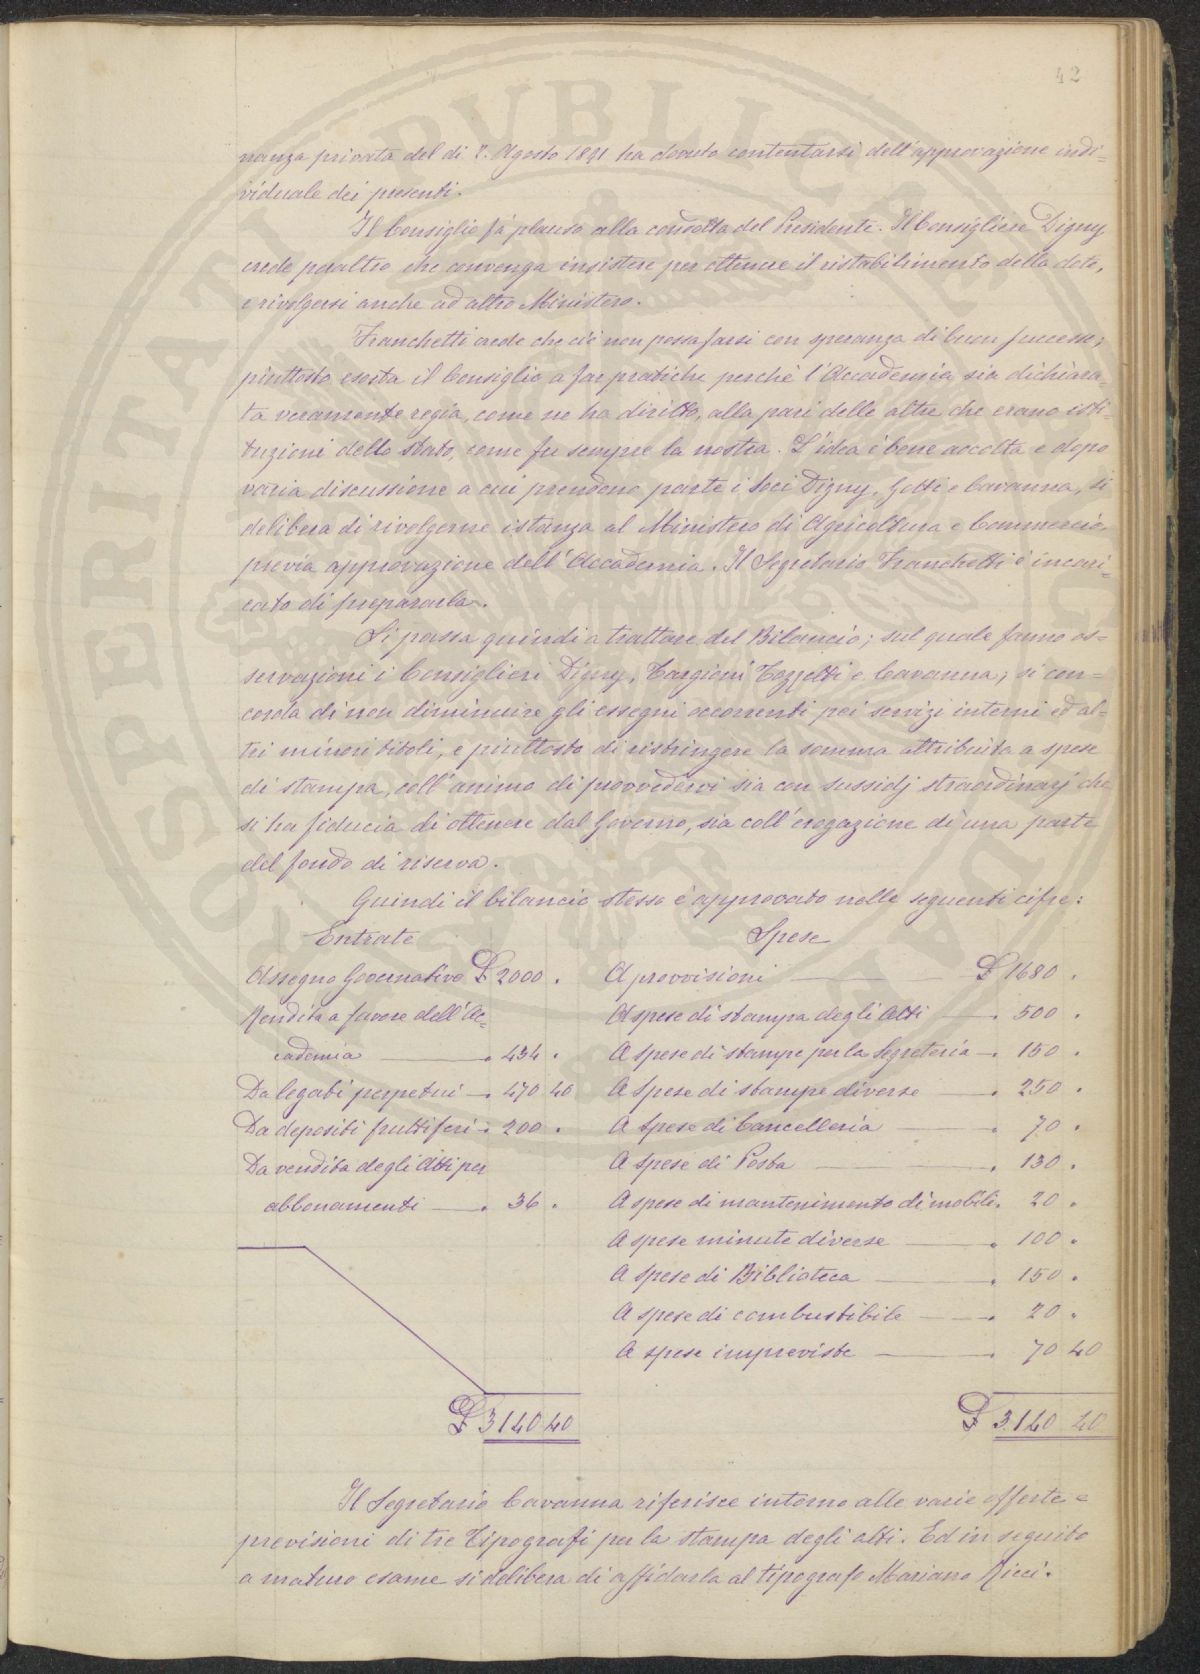 42
nanza privata del dì 2. Agosto 1891 ha dovuto contentarsi dell'approvazione indi=
viduale dei presenti.
Il Consiglio fà plauso alla condotta del Presidente. Il Consigliere Digny
crede peraltro che convenga insistere per ottenere il ristabilimento della dote,
e rivolgersi anche ad altro Ministero.
Franchetti crede che ciò non possa farsi con speranza di buon successo;
piuttosto esorta il Consiglio a far pratiche perchè l'Accademia sia dichiara=
ta veramente regia, come ne ha diritto, alla pari delle altre che erano isti=
tuzioni dello Stato, come fu sempre la nostra. L'idea è bene accolta e dopo
varia discussione a cui prendono parte i Soci Digny, Gotti e Cavanna, si
delibera di rivolgerne istanza al Ministero di Agricoltura e Commercio
previa approvazione dell'Accademia. Il Segretario Franchetti è incari=
cato di prepararla.
Si passa quindi a trattare del Bilancio; sul quale fanno os=
servazioni i Consiglieri Digny, Targioni Tozzetti e Cavanna; si con=
corda di non diminuire gli assegni occorrenti pei servizi interni ed al=
tri minori titoli, e piuttosto di ristringere la somma attribuita a spese
di stampa, coll'animo di provvedervi sia con sussidj straordinarj che
si ha fiducia di ottenere dal Governo, sia coll'erogazione di una parte
del fondo di riserva.
Quindi il bilancio stesso è approvato nelle seguenti cifre:
Entrate Spese
Assegno Governativo £ 2000 . A provvisioni £ 1680 .
Rendita a favore dell'Ac= A spese di stampa degli Atti . 500 .
cademia . 434 . A spese di stampe per la Segreteria . 150 .
Da legati perpetui . 470 40 A spese di stampe diverse . 250 .
Da depositi fruttiferi . 200 . A spese di Cancelleria . 70 .
Da vendita degli Atti per A spese di Posta . 130 .
abbonamenti . 36 . A spese di mantenimento di mobili . 20 .
A spese minute diverse . 100 .
A spese di Biblioteca . 150 .
A spese di combustibile . 20 .
A spese impreviste . 70 40
£ 3140 40 £ 3.140 40
Il Segretario Cavanna riferisce intorno alle varie offerte e
previsioni di tre Tipografi per la stampa degli atti. Ed in seguito
a maturo esame si delibera di affidarla al tipografo Mariano Ricci.
PROSPERITATI PVBLICAE